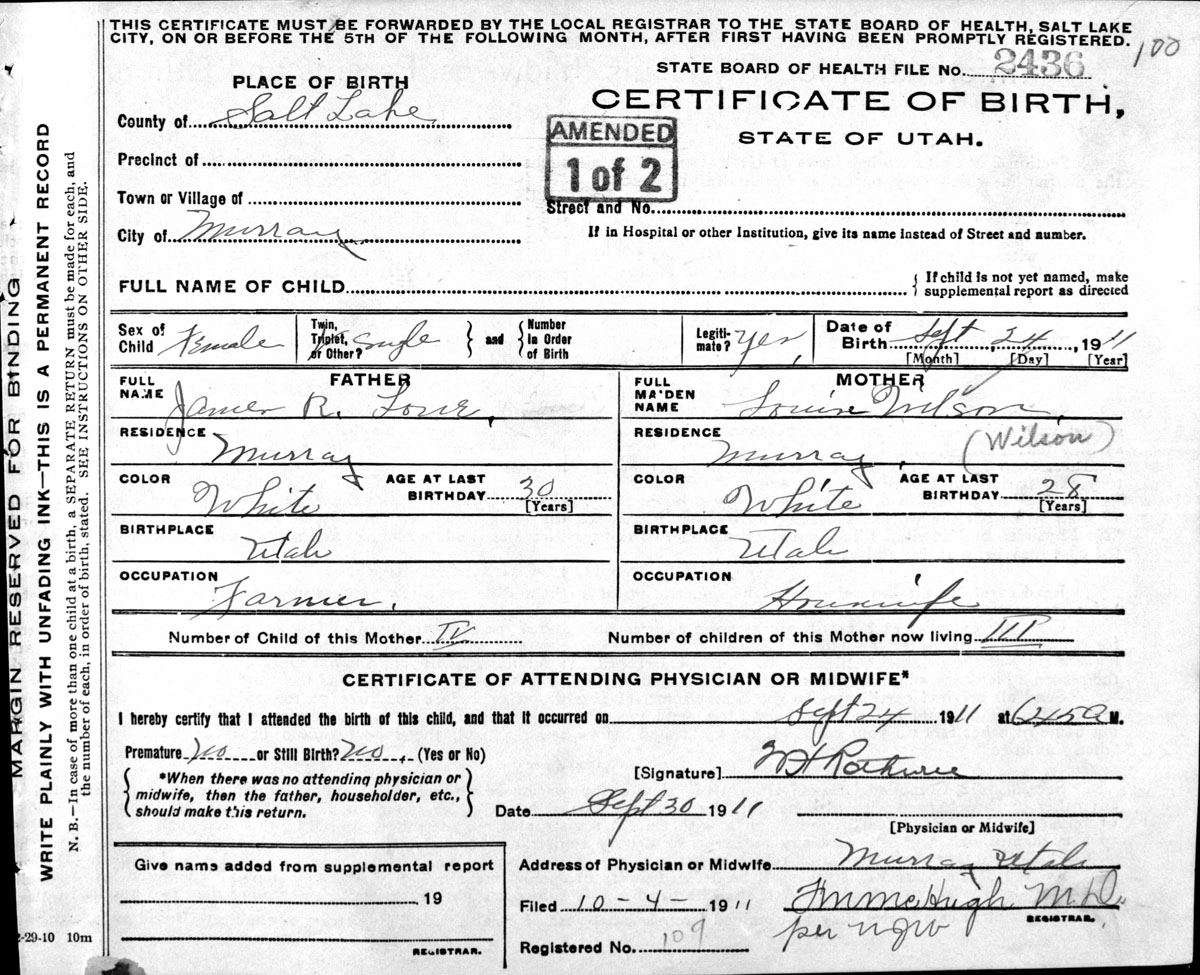 THIS CERTIFICATE MUST BE FORWARDED BY THE LOCAL REGISTRAR TO THE STATE BOARD OF HEALTH, SALT LAKE
CITY, ON OR BEFORE THE 5TH OF THE FOLLOWING MONTH, AFTER FIRST HAVING BEEN PROMPTLY REGISTERED.
100
STATE BOARD OF HEALTH FILE No. 2436
PLACE OF BIRTH
CERTIFICATE OF BIRTH,
STATE OF UTAH.
County of Salt Lake
AMENDED
1 of 2
Precinct of
Town or Village of
Street and No.
City of Murray
If in Hospital or other Institution, give its name instead of Street and number.
FULL NAME OF CHILD
{ If child is not yet named, make
supplemental report as directed
Sex of Child Female
Twin, Triplet, or Other? Single } and { Number in Order of Birth
Legitimate? Yes,
Date of Birth Sept, 24, 1911
[Month] [Day] [Year]
FATHER
FULL NAME James R. Lowe,
RESIDENCE Murray
COLOR White
AGE AT LAST BIRTHDAY 30
[Years]
BIRTHPLACE Utah
OCCUPATION Farmer.
MOTHER
FULL MAIDEN NAME Louise Wilson,
(Wilson)
RESIDENCE Murray,
COLOR White
AGE AT LAST BIRTHDAY 28
[Years]
BIRTHPLACE Utah
OCCUPATION Housewife
Number of Child of this Mother IV
Number of children of this Mother now living III
CERTIFICATE OF ATTENDING PHYSICIAN OR MIDWIFE*
I hereby certify that I attended the birth of this child, and that it occurred on Sept 24 1911 at 6 45 a M.
Premature? no or Still Birth? no, (Yes or No)
{ *When there was no attending physician or
midwife, then the father, householder, etc.,
should make this return. }
[Signature]
Date Sept 30 1911
[Physician or Midwife]
Give name added from supplemental report
19
REGISTRAR.
Address of Physician or Midwife Murray Utah
Filed 10-4- 1911
McHugh M.D.
REGISTRAR.
per
Registered No. 109
MARGIN RESERVED FOR BINDING
WRITE PLAINLY WITH UNFADING INK—THIS IS A PERMANENT RECORD
N. B.—In case of more than one child at a birth, a SEPARATE RETURN must be made for each, and
the number of each, in order of birth, stated. SEE INSTRUCTIONS ON OTHER SIDE.
2-29-10 10m